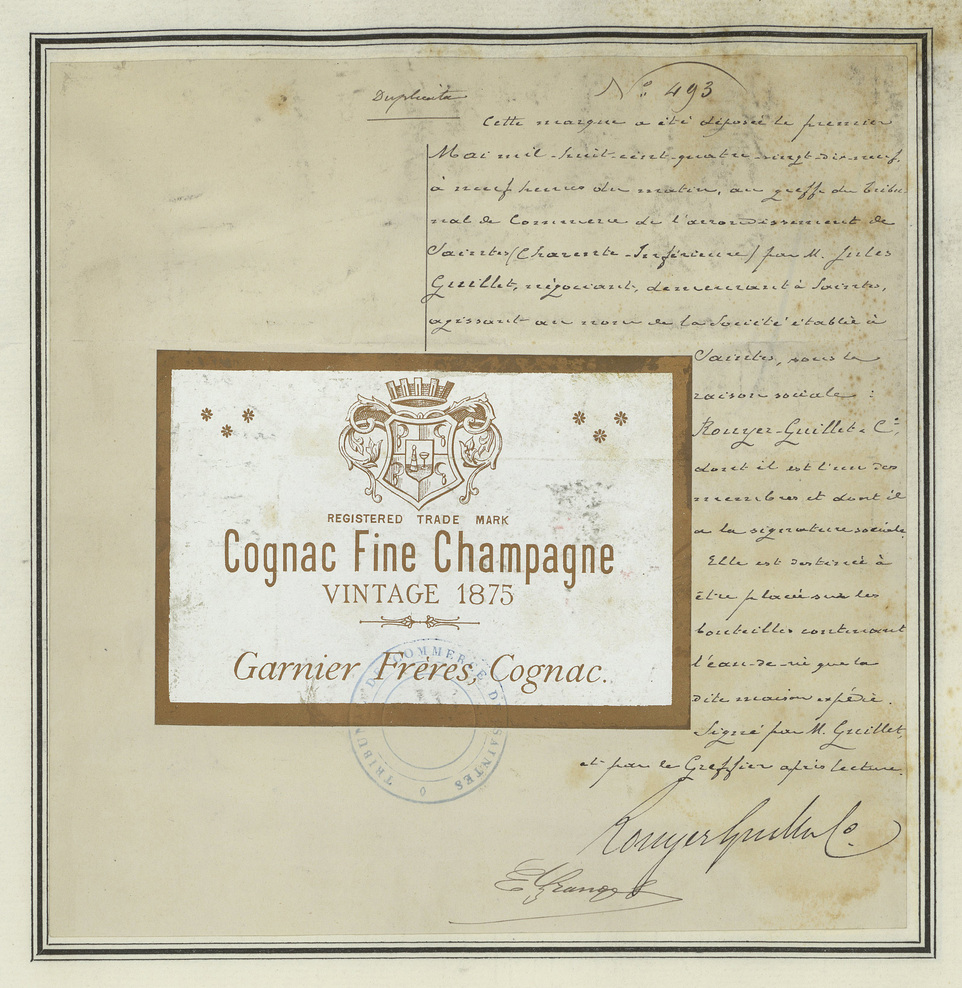 Duplicata
N° 493
Cette marque a été déposée le premier
Mai mil-huit-cent-quatre-vingt-dix-neuf,
à neuf heures du matin, au greffe du Tribu-
nal de Commerce de l'arrondissement de
Saintes (Charente-Inférieure) par M. Jules
Guillet, négociant, demeurant à Saintes,
agissant au nom de la Société établie à
Saintes, sous la
raison sociale :
Rouyer-Guillet & Cie,
dont il est l'un des
membres et dont il
a la signature sociale.
Elle est destinée à
être placée sur les
bouteilles contenant
l'eau-de-vie que la
dite maison expédie.
Signé par M. Guillet,
et par le Greffier après lecture.
REGISTERED TRADE MARK
Cognac Fine Champagne
VINTAGE 1875
Garnier Frères, Cognac.
TRIBUNAL DE COMMERCE DE SAINTES
Rouyer Guillet Co.